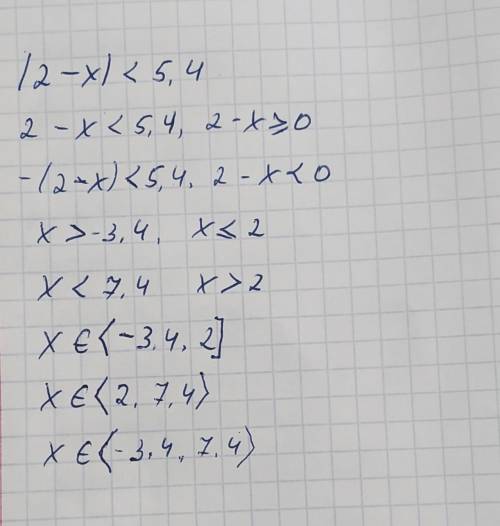 |2-x| < 5,4
2-x < 5,4, 2-x ≥ 0
-(2-x) < 5,4, 2-x < 0
x > -3,4, x ≤ 2
x < 7,4 x > 2
x ∈ ⟨-3,4, 2]
x ∈ ⟨2, 7,4⟩
x ∈ ⟨-3,4, 7,4⟩